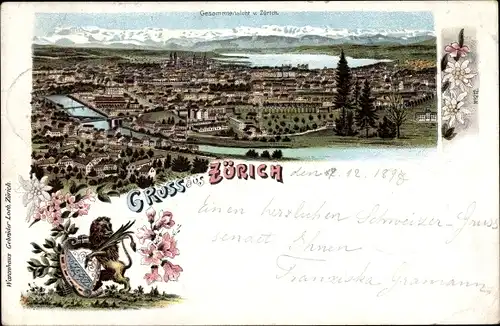 Gesammtansicht v. Zürich.
GRUSS aus ZÜRICH
den 12. 1898
Einen herzlichen Schweizer-Gruss
senatt Ihnen
Franziska Gramann
Warenhaus Gebrüder Loeb, Zürich